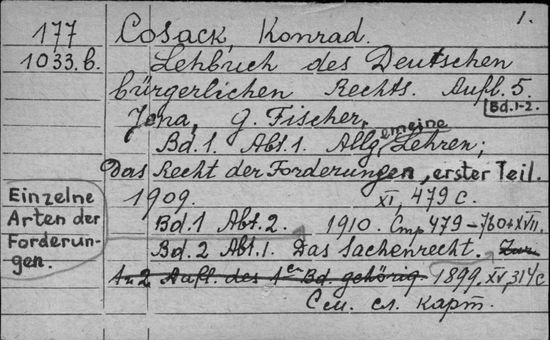 1.
177 Cosack, Konrad.
1033.b. Lehbuch des Deutschen
bürgerlichen Rechts. Aufl. 5.
Bd.1-2.
Jena, G. Fischer,
Bd.1. Abt.1. Allgemeine Lehren;
Das Recht der Forderungen, erster Teil.
1909. XI, 479 с.
Einzelne
Arten der
Forderun-
gen.
Bd.1 Abt.2. 1910. Стр 479-760+XVII.
Bd.2 Abt.1. Das Sachenrecht. Zur
1u2 Aufl. des 1en Bd. gehörig. 1899. XV, 314 с
См. сл. карт.